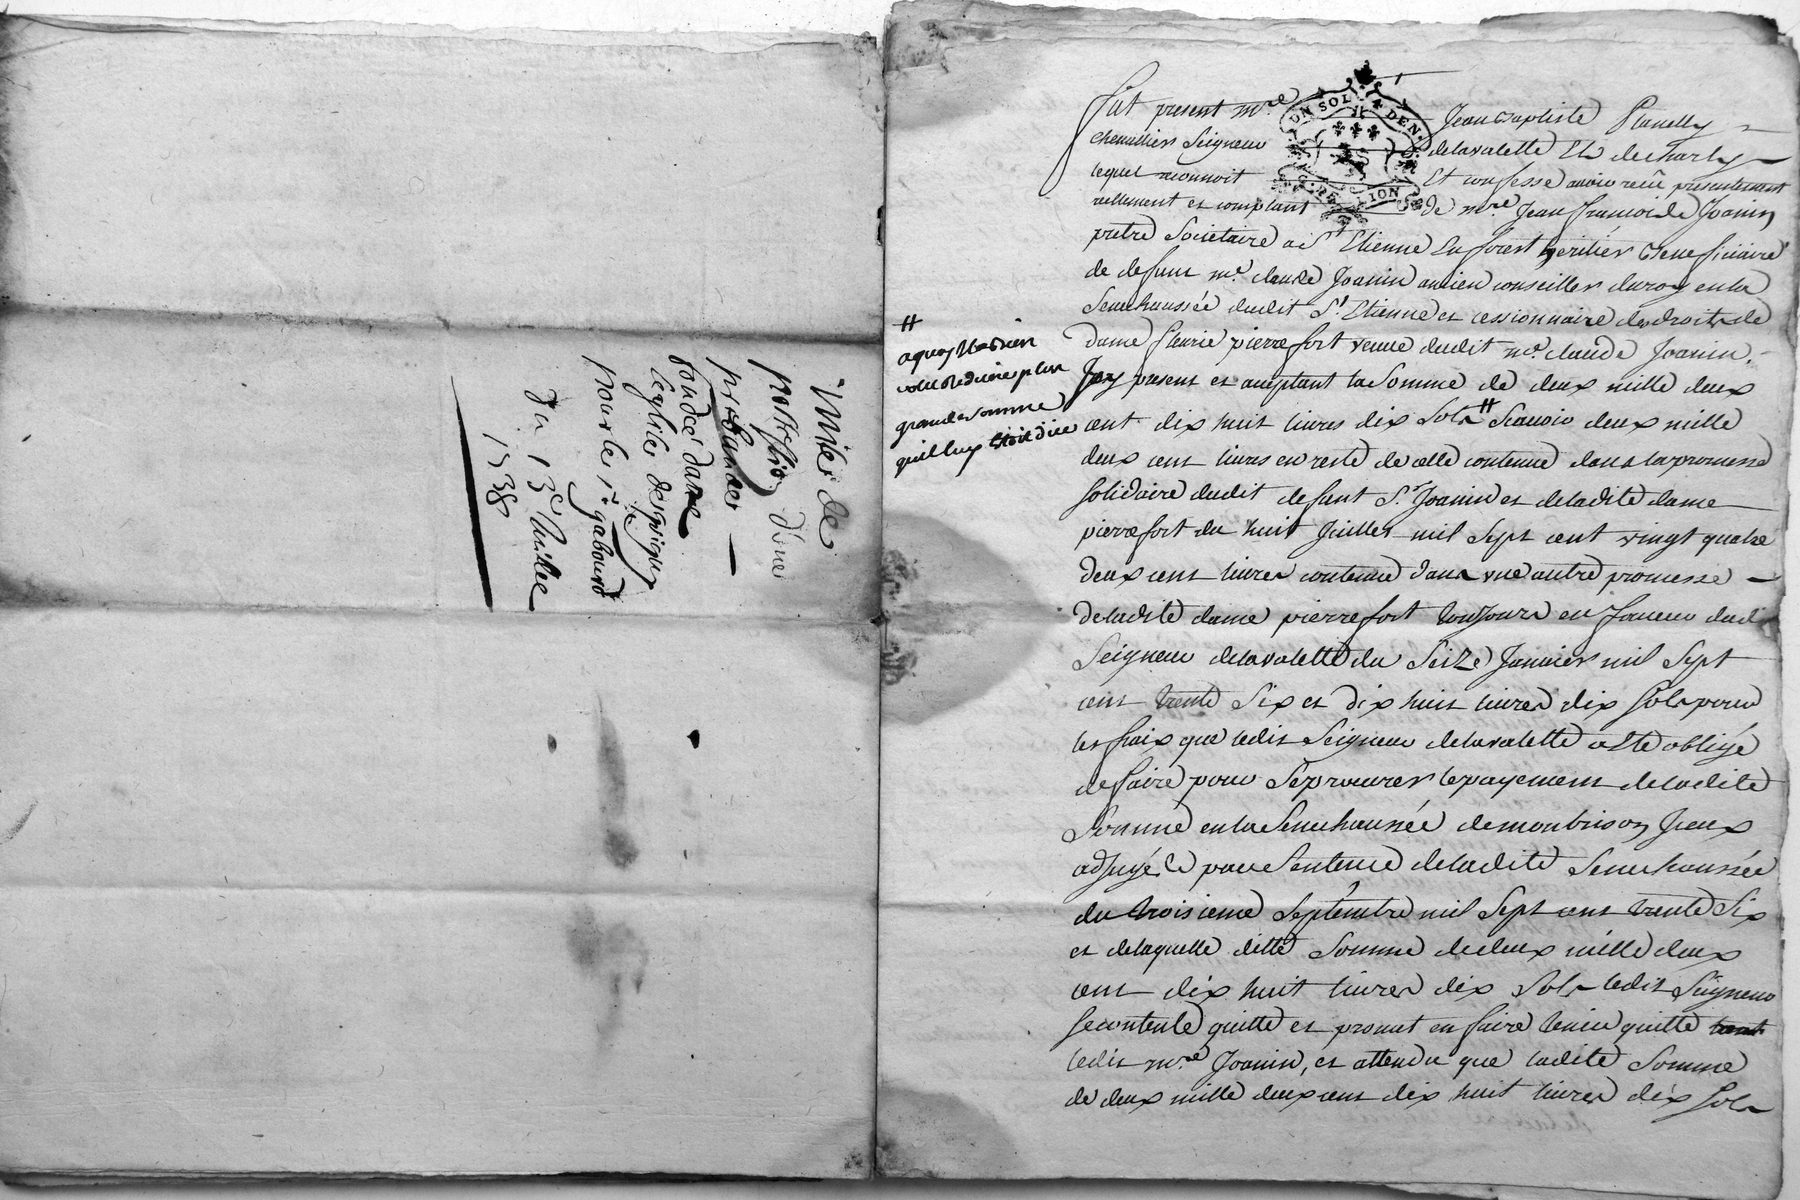 Mise de
possession d'une
prebande
fondée dans
l'eglise
pour le sr. gabourd
du 13e Juillet
1738
UN SOL 4 DEN.
G. DE LION
fut present mre Jean Baptiste Planelly
chevallier Seigneur delavalette Et decharly
lequel reconnoit Et confesse avoir reçu presentement
reellement et comptant de mre Jean françois de Joanin
pretre Societaire a St Etienne En forest heritier Beneficiaire
de defunt me. claude Joanin ancien conseiller du roy en la
Senechaussée dudit St Etienne et cessionnaire des droits de
dame fleurie pierrefort veuve dudit me. claude Joanin,
Icy present et aceptant la Somme de deux mille deux
cent dix huit livres dix Sols # Scavoir deux mille
#
a quoy
reduire plus
grande somme
quil luy dûe
deux cent livres en reste de celle contenue dans la promesse
Solidaire dudit defunt Sr Joanin et de ladite dame
pierrefort du huit Juillet mil Sept cent vingt quatre
deux cent livres contenue dans une autre promesse
de ladite dame pierrefort toujours en faveur dudit
Seigneur delavalette du Seize Janvier mil Sept
cent trente Six et dix huit livres dix Sols pour
les frais que ledit Seigneur delavalette a Eté obligé
de faire pour Se procurer le payement de ladite
Somme en la Senechaussée de monbrison Iceux
adjugés par Sentence de ladite Senechaussée
du troisieme Septembre mil Sept cent trente Six
et de laquelle ditte Somme de deux mille deux
cent dix huit livres dix Sols ledit Seigneur
Se contente quitte et promet en faire tenir quitte
ledit mre Joanin, et attendu que ladite Somme
de deux mille deux cent dix huit livres dix Sols